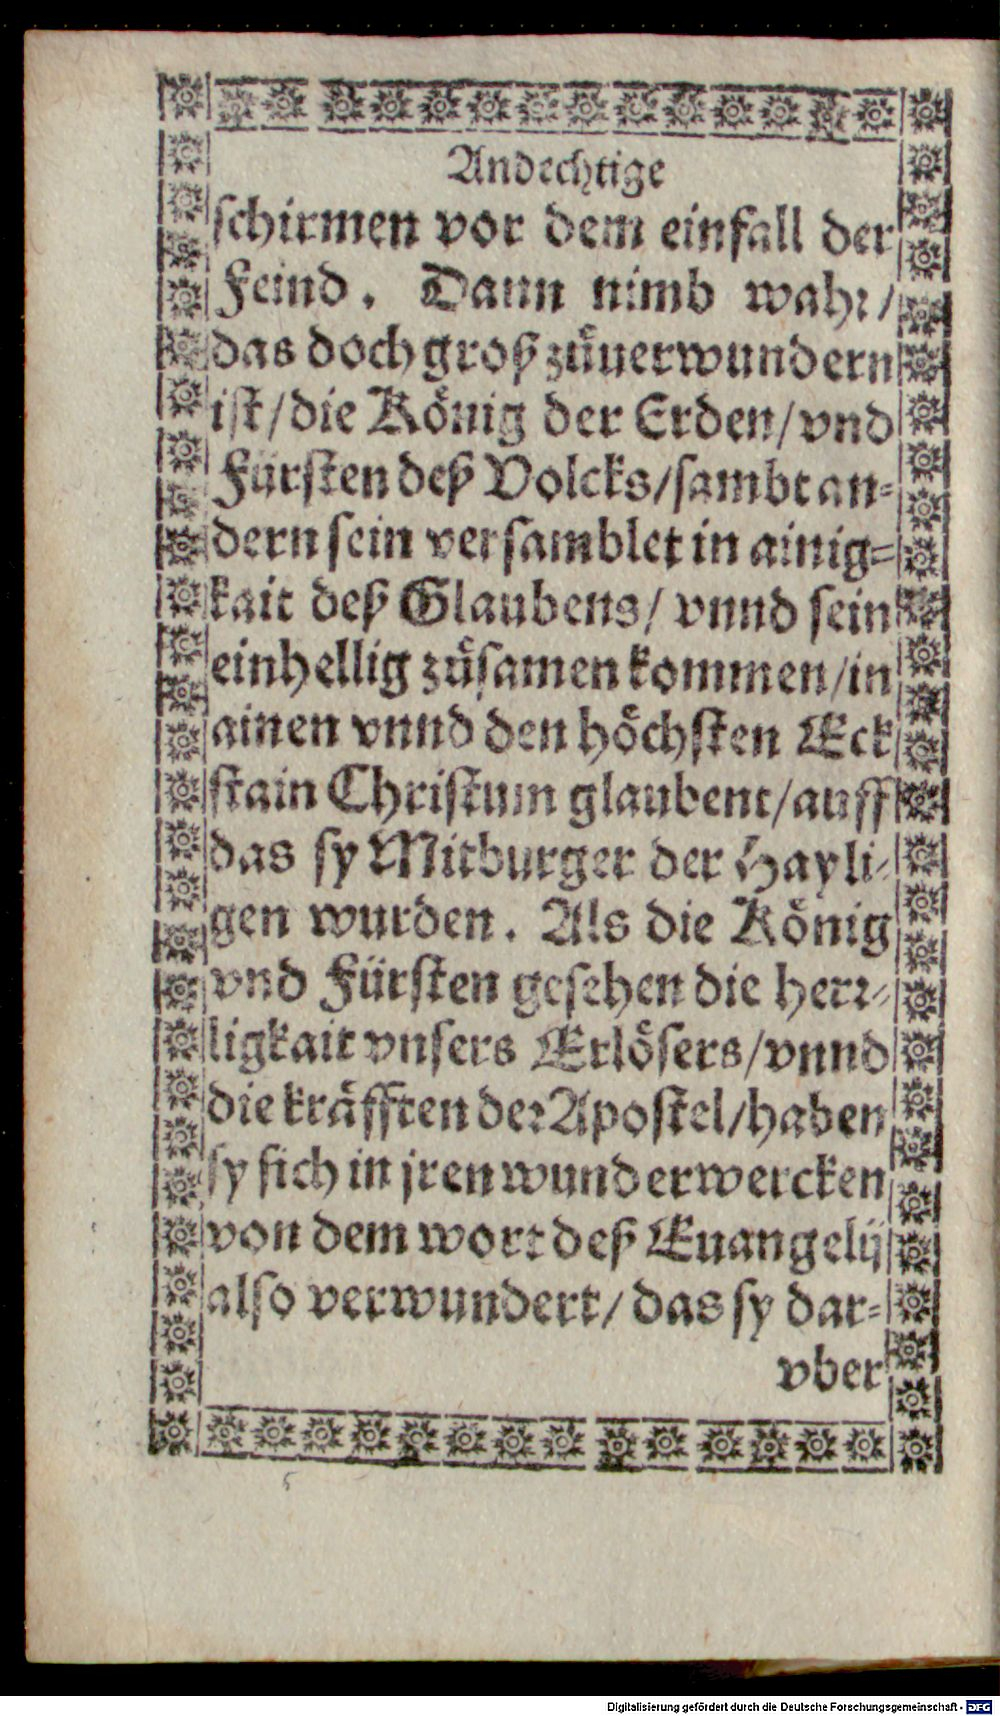 Andechtige
schirmen vor dem einfall der
Feind. Dann nimb wahr/
das doch groß zůuerwundern
ist/die König der Erden/vnd
Fürsten deß Volcks/sambt an-
dern sein versamblet in ainig-
kait deß Glaubens/ vnnd sein
einhellig zůsamen kommen/in
ainen vnnd den höchsten Eck
stain Christum glaubent/auff
das sy Mitburger der Hayli-
gen wurden. Als die König
vnd Fürsten gesehen die herr-
ligkait vnsers Erlösers/vnnd
die kräfften der Apostel/haben
sy sich in jren wunderwercken
von dem wort deß Euangelij
also verwundert/ das sy dar-
vber
Digitalisierung gefördert durch die Deutsche Forschungsgemeinschaft - DFG